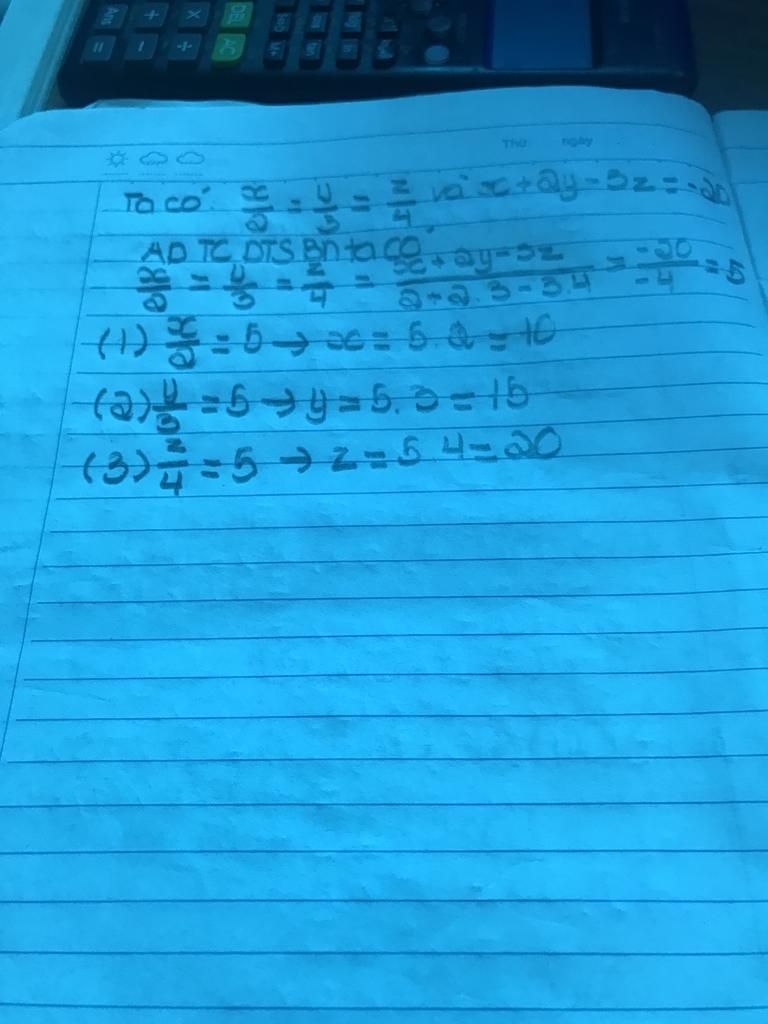 Ans + X DEL
= - ÷ AC
Thứ ngày
Ta có: x/2 = y/3 = z/4 và x + 2y - 3z = -20
AD TC DTS BN ta có
x/2 = y/3 = z/4 = x + 2y - 3z / 2 + 2.3 - 3.4 = -20/-4 = 5
(1) x/2 = 5 → x = 5.2 = 10
(2) y/3 = 5 → y = 5.3 = 15
(3) z/4 = 5 → z = 5.4 = 20